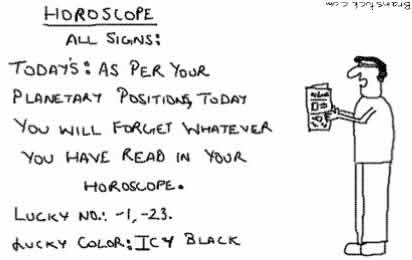 HOROSCOPE
ALL SIGNS:
TODAY'S: AS PER YOUR
PLANETARY POSITIONS, TODAY
YOU WILL FORGET WHATEVER
YOU HAVE READ IN YOUR
HOROSCOPE.
LUCKY NO.: -1, -23.
LUCKY COLOR: ICY BLACK
Brainstuck.com